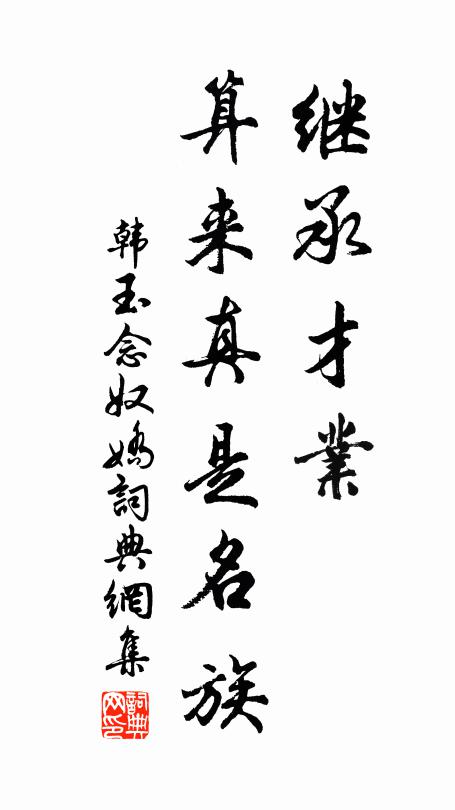 继承才業
算来真是名族
韩玉念奴嬌詞典網集
詞典网印